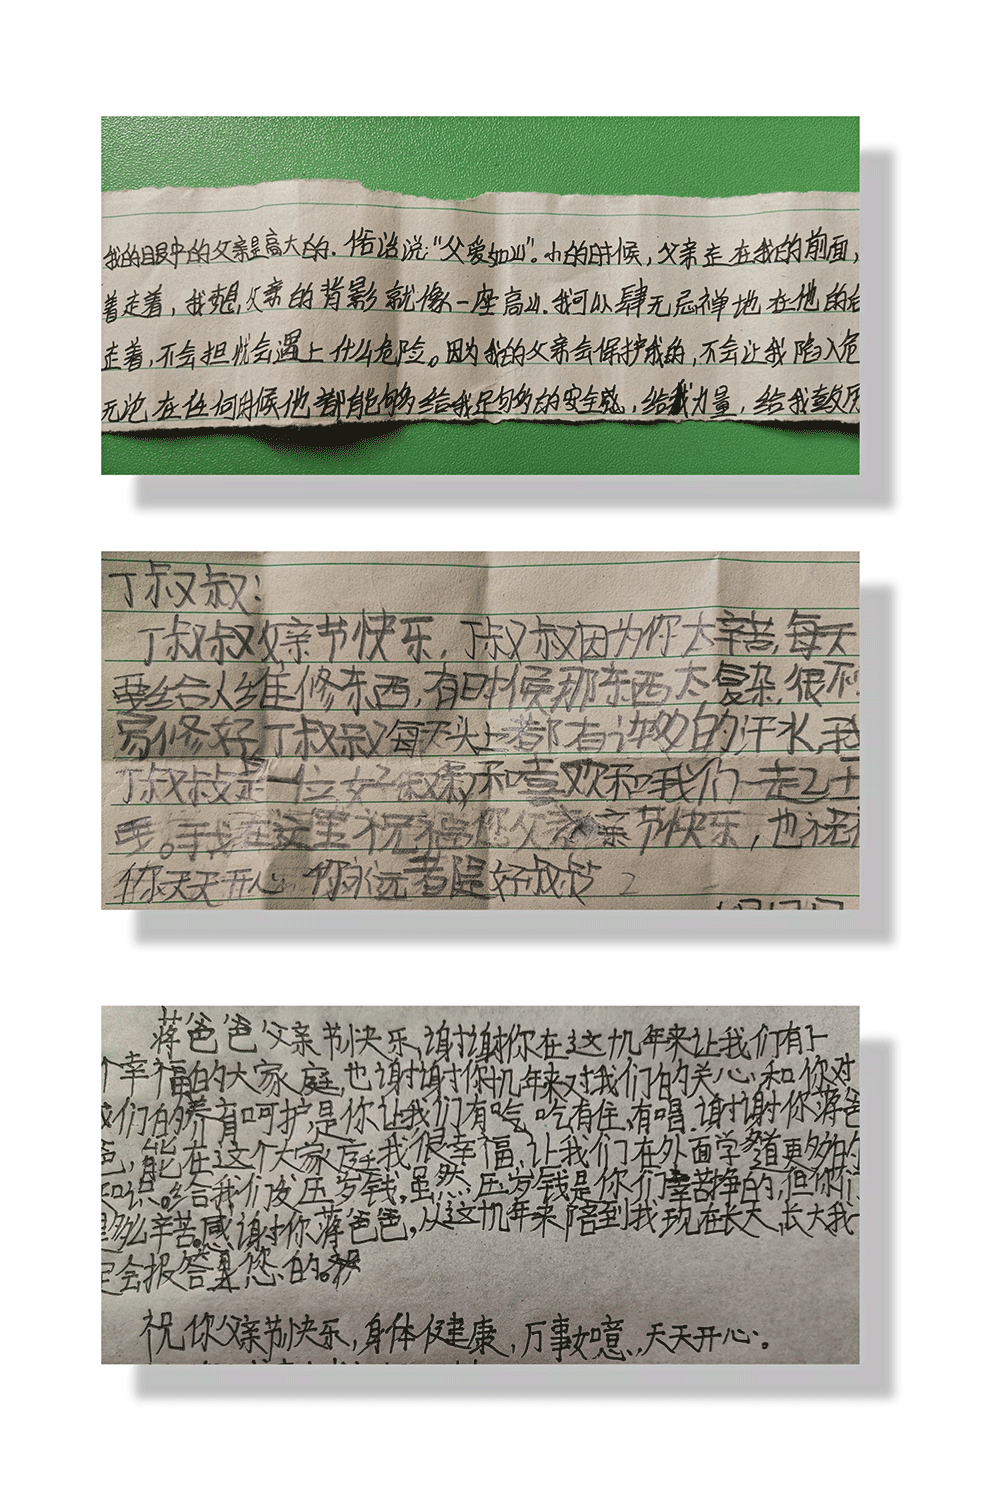 我的眼中的父亲是高大的.俗话说:"父爱如山"。小的时候,父亲走在我的前面,
着走着,我想,父亲的背影就像一座高山.我可以肆无忌禅地在他的
走着,不会担忧会遇上什么危险。因为我的父亲会保护我的,不会让我陷入危
无论在任何时候他都能够给我足够多的安全感,给我力量,给我鼓历
丁叔叔:
丁叔叔父亲节快乐,丁叔叔因为你太辛苦,每天
要给人维修东西,有时候那东西太复杂,很不
易修好,丁叔叔每天头上都有许多的汗水,我
丁叔叔是一位好叔叔,和喜欢和我们一走
耍。我在这里祝福您父亲节快乐,也祝
你天天开心 你永远都是好叔叔
蒋爸爸父亲节快乐,谢谢你在这九年来让我们有了一
个幸福的大家庭,也谢谢你九年来对我们的关心和你对
我们的养育呵护是你让我们有吃,吃有住,有唱.谢谢你蒋爸
爸,能在这个大家庭我很幸福,让我们在外面学道更多的
知识。给我们发压岁钱,虽然,压岁钱是你们辛苦挣的,但你们
是多么辛苦.感谢你蒋爸爸,从这九年来陪到我现在长大,长大我一
定会报答您的。
祝你父亲节快乐,身体健康,万事如意,天天开心。